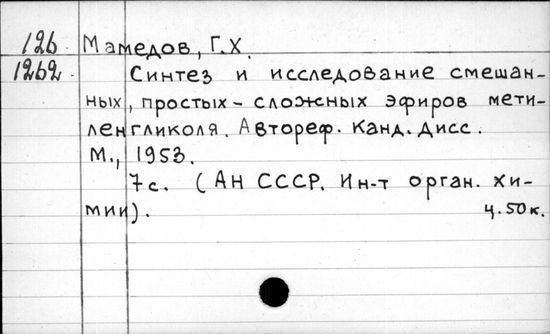 126. Мамедов, Г.Х.
1262. Синтез и исследование смешан-
ных, простых-сложных эфиров мети-
ленгликоля. Автореф. Канд. Дисс.
М., 1953.
7с. (АН СССР. Ин-т орган. хи-
мии).
ц.50к.